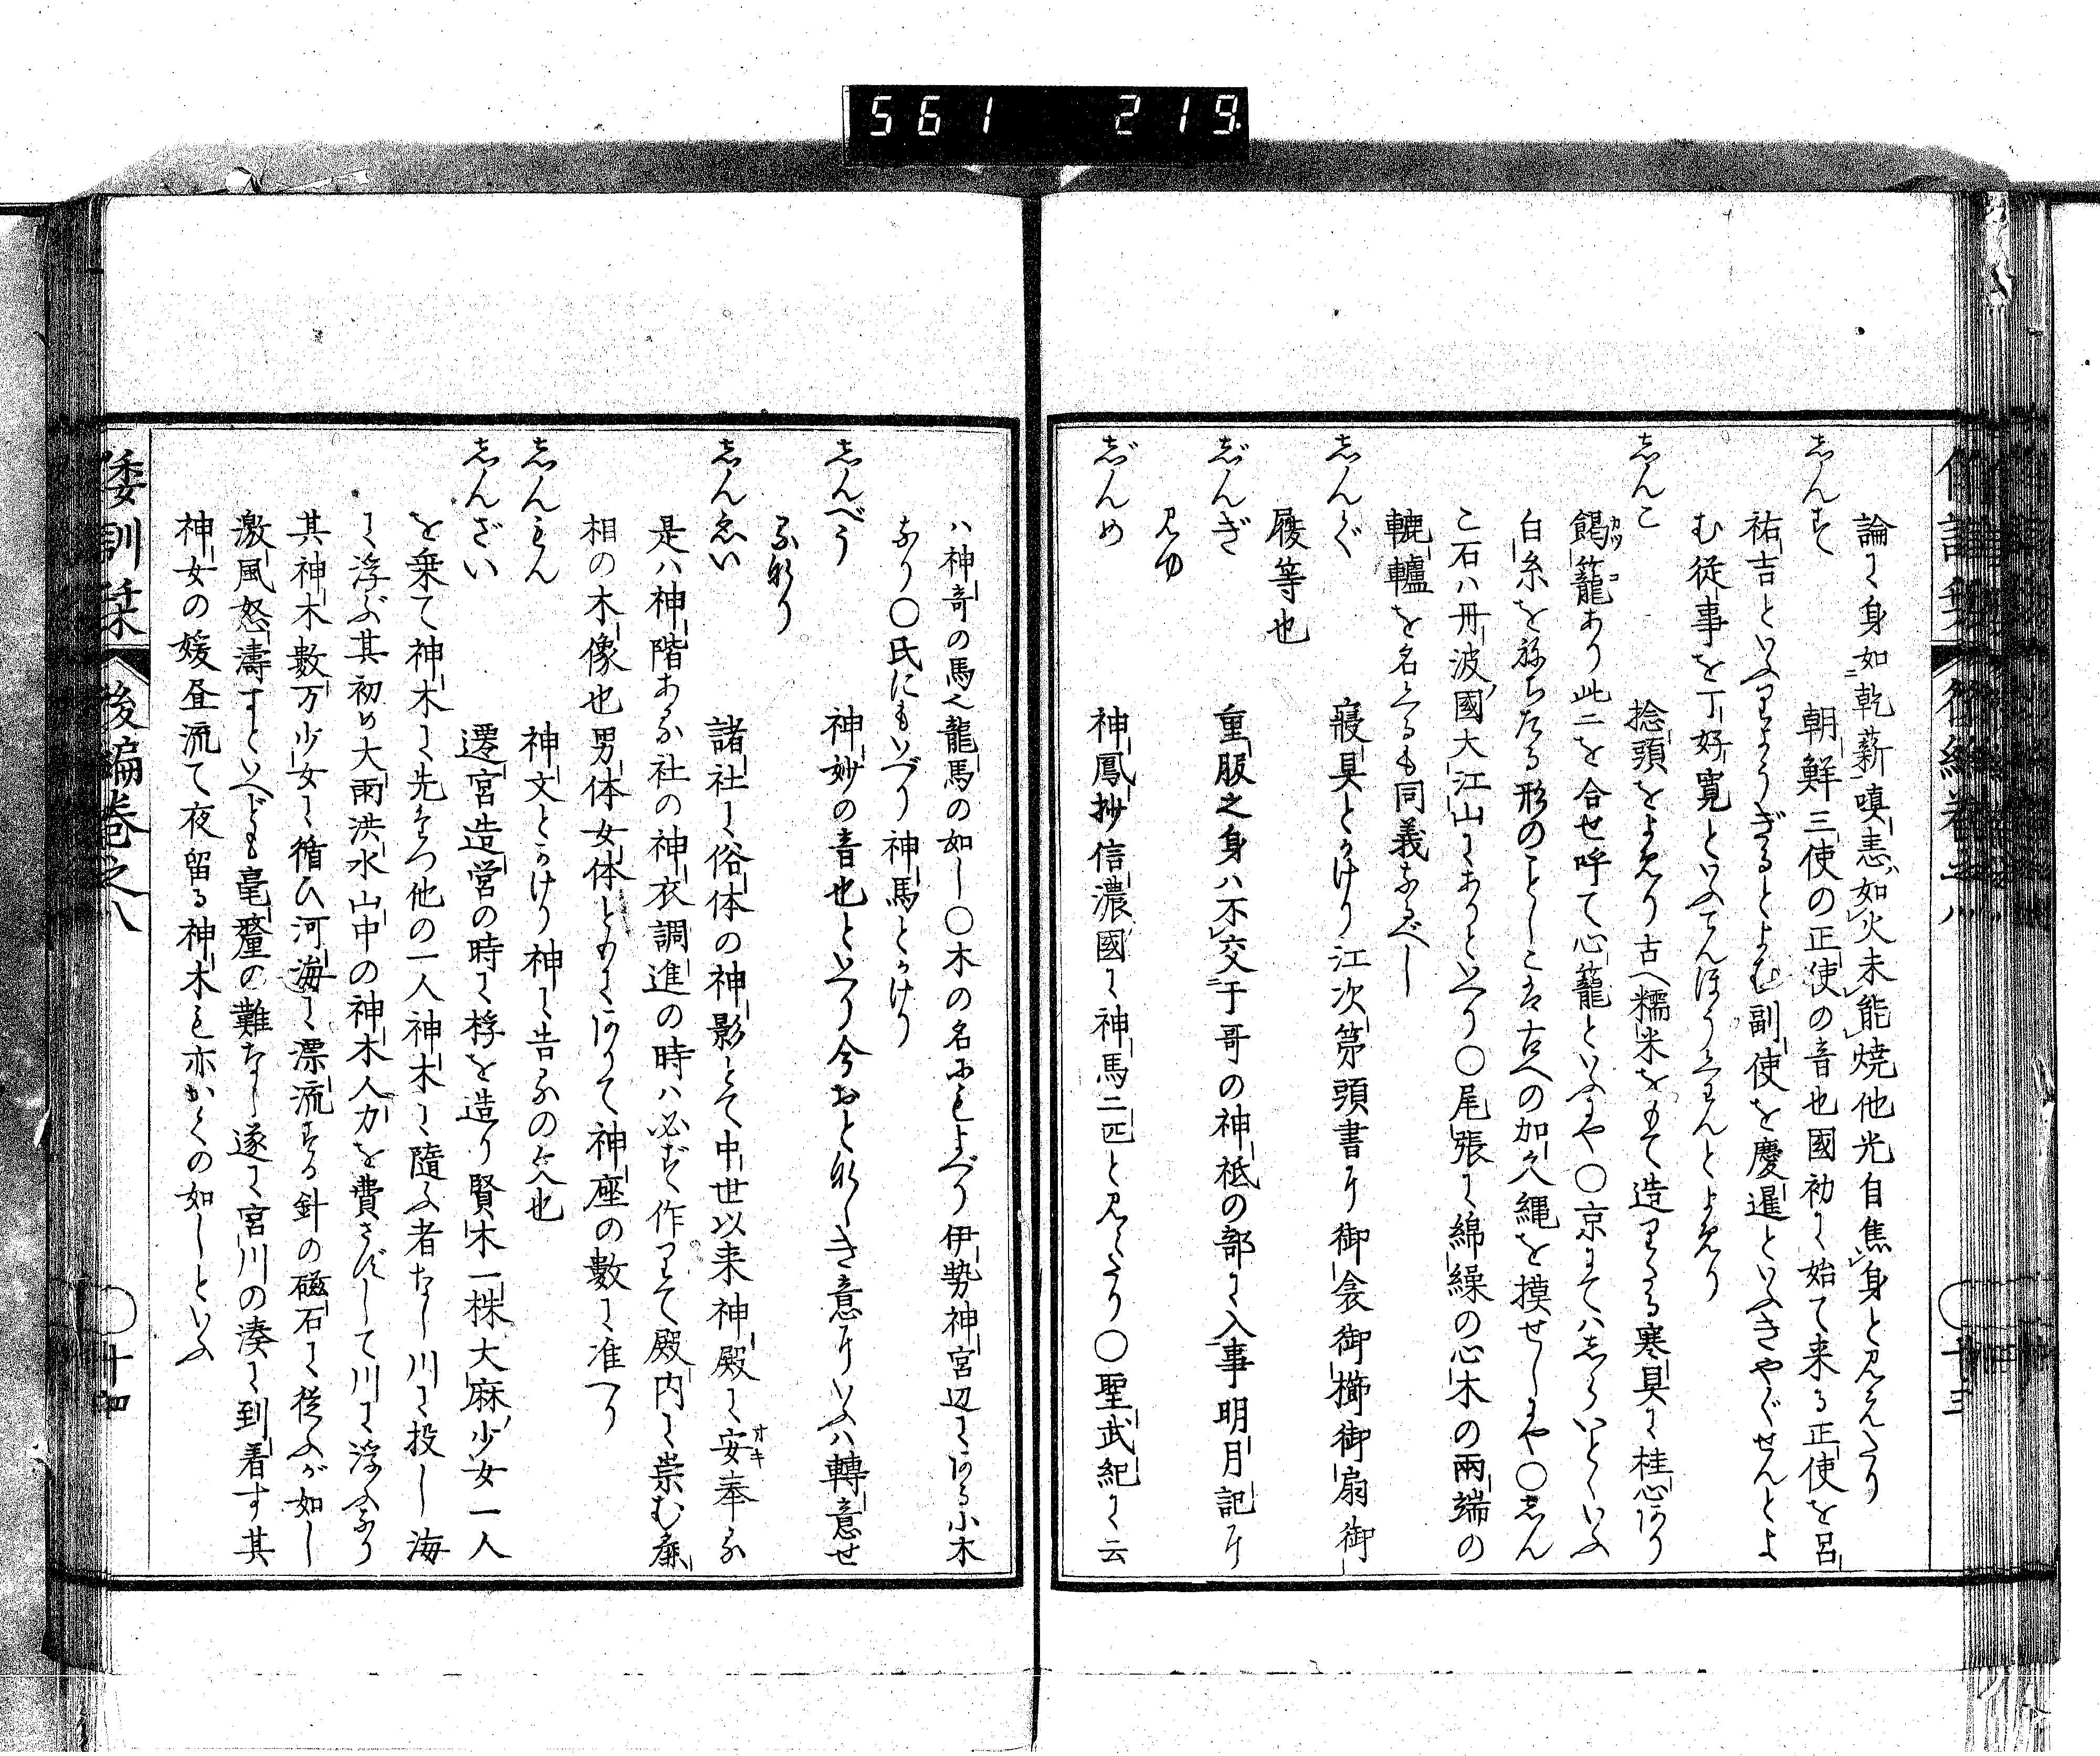 561 219
論に身如乾薪嗔恚如火未能焼他光自焦身と見えたり
志んす 朝鮮三使の正使の音也國初に始て来る正使を呂
祐吉といふりようぎるとよむ副使を慶暹といふきやぐせんとよ
む従事を丁好寛といふてんほうくわんとよめり
志んこ 捻頭をよめり古へ糯米をもて造りたる寒具に桂心あり
餲籠あり此二を合せ呼て心籠といふにや〇京にてハ志らいとゝいふ
白糸をねちたる形のことしこは古への加久縄を摸せしにや〇志ん
こ石ハ丹波國大江山にありといへり〇尾張に綿繰の心木の兩端の
轆轤を名くるも同義なるべし
志んぐ 寝具とかけり江次第頭書に御衾御櫛御扇御
履等也
志んぎ 重服之身ハ不交于哥の神祇の部に入事明月記に
見ゆ
志んめ 神鳳抄信濃國に神馬二匹と見えたり〇聖武紀に云
ハ神竒の馬也龍馬の如し〇木の名にもよべり伊勢神宮辺にある小木
なり〇氏にもいづり神馬とかけり
志んべう 神妙の音也といへり今おとなしき意にいふハ轉意せ
るなり
志んゑい 諸社に俗体の神影とて中世以来神殿に安奉る
是ハ神階ある社の神衣調進の時ハ必ず作りて殿内に崇む𢈘
相の木像也男体女体ともにありて神座の數に准へり
志んもん 神文とかけり神に告るの文也
志んざい 遷宮造営の時に桴を造り賢木一株大麻少女一人
を乗て神木に先たつ他の一人神木に隨ふ者なし川に投し海
に浮ぶ其初め大雨洪水山中の神木人力を費さずして川に浮ふなり
其神木數万少女に循ひ河海に漂流する針の磁石に従ふが如し
激風怒濤すといへども毫釐の難なし遂に宮川の湊に到着す其
神女の媛昼流て夜留る神木も亦かくの如しといふ
倭訓栞 後編巻之八 〇十四